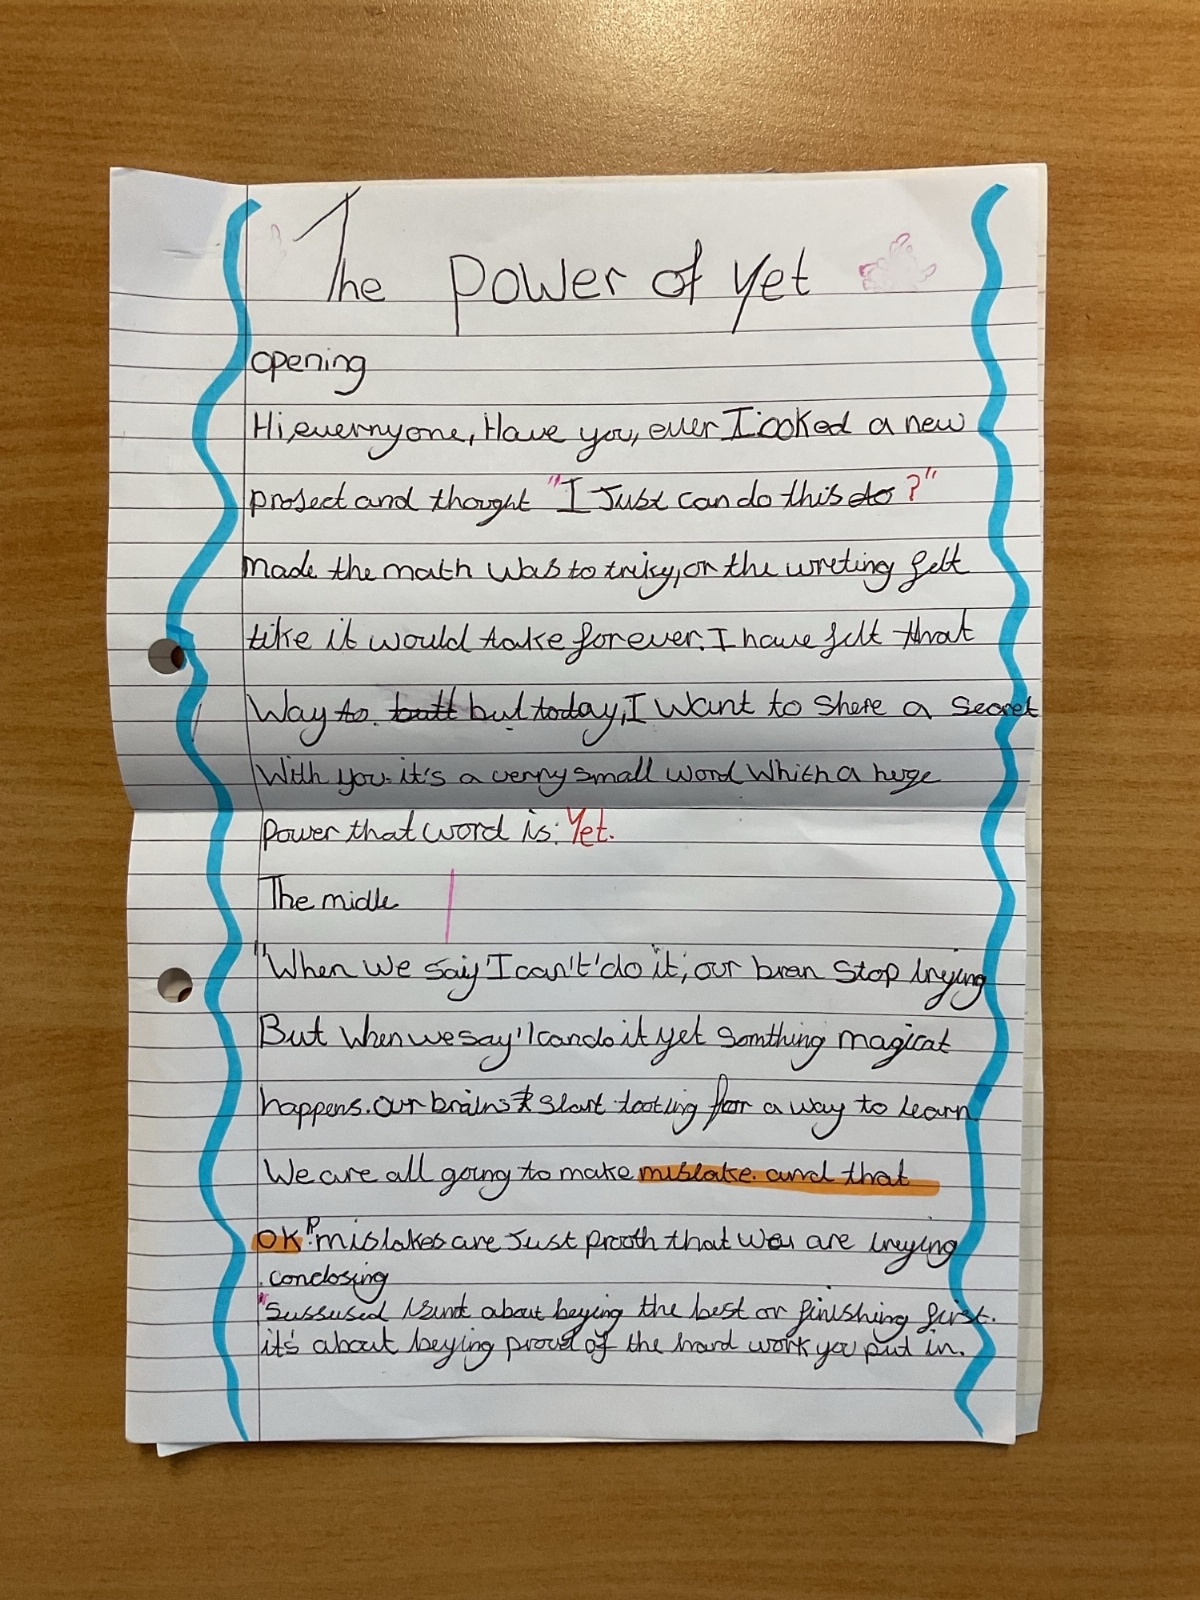 The Power of Yet
opening
Hi, evernyone, Have you, ever Looked a new
prosect and thought "I Just can do this do ?"
made the math was to triky, or the wreting felt
like it would take forever. I have felt that
Way to. butt but today, I want to Shere a Secret
With you. it's a verny small word Whith a huge
Power that word is: Yet.
The midle
"When we say 'I can't' do it, our bran Stop trying
But when we say 'I can do it yet Somthing magical
happens. Our brains start looking for a way to learn
We are all going to make mistake. and that
OK". mistakes are Just prooth that you are trying
conclosing
"Sussused Isint about beying the best or finishing first.
it's about beying proud of the hard work you put in.